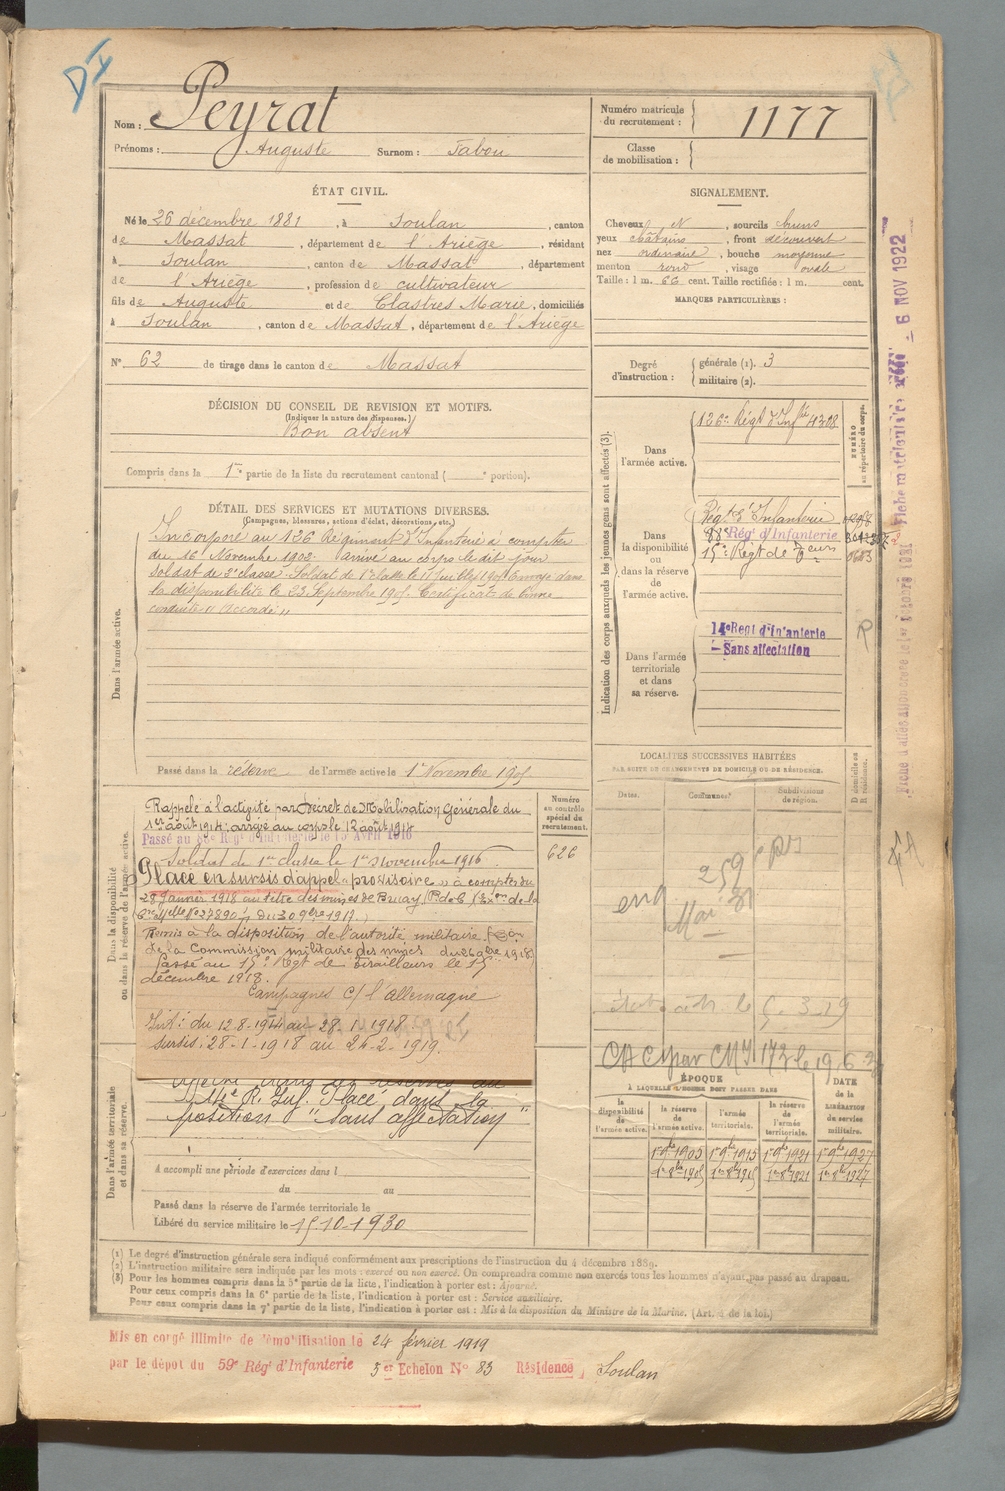 Nom : Peyrat
Prénoms : Auguste Surnom : Tabou
Numéro matricule du recrutement : 1177
Classe de mobilisation :
ÉTAT CIVIL.
Né le 26 décembre 1881, à Soulan, canton
de Massat, département de l'Ariège, résidant
à Soulan, canton de Massat, département
de l'Ariège, profession de cultivateur
fils de Auguste et de Clastres Marie, domiciliés
à Soulan, canton de Massat, département de l'Ariège
N° 62 de tirage dans le canton de Massat
SIGNALEMENT.
Cheveux N, sourcils bruns
yeux châtains, front découvert
nez ordinaire, bouche moyenne
menton rond, visage ovale
Taille : 1 m. 62 cent. Taille rectifiée : 1 m. cent.
MARQUES PARTICULIÈRES :
Degré d'instruction : générale (1). 3
militaire (2).
DÉCISION DU CONSEIL DE REVISION ET MOTIFS.
(Indiquer la nature des dispenses.)
Bon absent
Compris dans la 1re partie de la liste du recrutement cantonal ( e portion).
DÉTAIL DES SERVICES ET MUTATIONS DIVERSES.
(Campagnes, blessures, actions d'éclat, décorations, etc.)
Dans l'armée active.
Incorporé au 126 Régiment d'Infanterie à compter
du 16 Novembre 1902. arrivé au corps le dit jour
soldat de 2e classe. Soldat de 1e classe le Envoyé dans
la disponibilité le 23 Septembre 1905. Certificat de bonne
conduite " Accordé "
Passé dans la réserve de l'armée active le 1er Novembre 1905
Indication des corps auxquels les jeunes gens sont affectés (3).
NUMÉRO au répertoire du corps.
Dans l'armée active.
126e Régt d'Infrie 4308
Dans la disponibilité ou dans la réserve de l'armée active.
Régt d'Infanterie
88e Rég d'Infanterie
15e Régt de
Dans l'armée territoriale et dans sa réserve.
14e Regt d'Infanterie
- Sans affectation
R
6 NOV 1922
LOCALITÉS SUCCESSIVES HABITÉES
PAR SUITE DE CHANGEMENTS DE DOMICILE OU DE RÉSIDENCE.
Dates. Communes. Subdivisions de région. D domicile ou R résidence.
259
Mai
Dans la disponibilité ou dans la réserve de l'armée active.
Numéro au contrôle spécial du recrutement.
626
Rappelé à l'activité par Décret de Mobilisation Générale du
1er août 1914 arrivé au corps le 12 août 1914
Passé au 88e Rég d'Infanterie le 15 Avril 1916
Soldat de 1re classe le 1er Novembre 1916
Placé en sursis d'appel " provisoire " à compter du
28 Janvier 1918 au titre des mines de Bruay (P. de C.) (Exon de la
Remis à la disposition de l'autorité militaire
de la Commission militaire des mines du 1918)
Passé au 15e Régt de tirailleurs le 15
décembre 1918.
Campagnes c/ l'allemagne
Int : du 12-8-1914 au 28-1-1918
sursis : 28-1-1918 au 24-2-1919.
Dans l'armée territoriale et dans sa réserve.
14e R. Inf. Placé dans la
position " Sans affectation "
A accompli une période d'exercices dans l
du au
Passé dans la réserve de l'armée territoriale le
Libéré du service militaire le 15-10-1930
ÉPOQUE
À LAQUELLE L'HOMME DOIT PASSER DANS
la disponibilité de l'armée active. la réserve de l'armée active. l'armée territoriale. la réserve de l'armée territoriale. DATE de la LIBÉRATION du service militaire.
1er 9bre 1905 1er 9bre 1915 1er 9bre 1921 1er 9bre 1927
1er 8bre 1905 1er 8bre 1915 1er 8bre 1921 1er 8bre 1927
(1) Le degré d'instruction générale sera indiqué conformément aux prescriptions de l'instruction du 4 décembre 1889.
(2) L'instruction militaire sera indiquée par les mots : exercé ou non exercé. On comprendra comme non exercés tous les hommes n'ayant pas passé au drapeau.
(3) Pour les hommes compris dans la 5e partie de la liste, l'indication à porter est : Ajourné.
Pour ceux compris dans la 6e partie de la liste, l'indication à porter est : Service auxiliaire.
Pour ceux compris dans la 7e partie de la liste, l'indication à porter est : Mis à la disposition du Ministre de la Marine. (Art. de la loi.)
Mis en congé illimité de démobilisation le 24 février 1919
par le dépôt du 59e Rég d'Infanterie 3er Echelon N° 83 Résidence Soulan